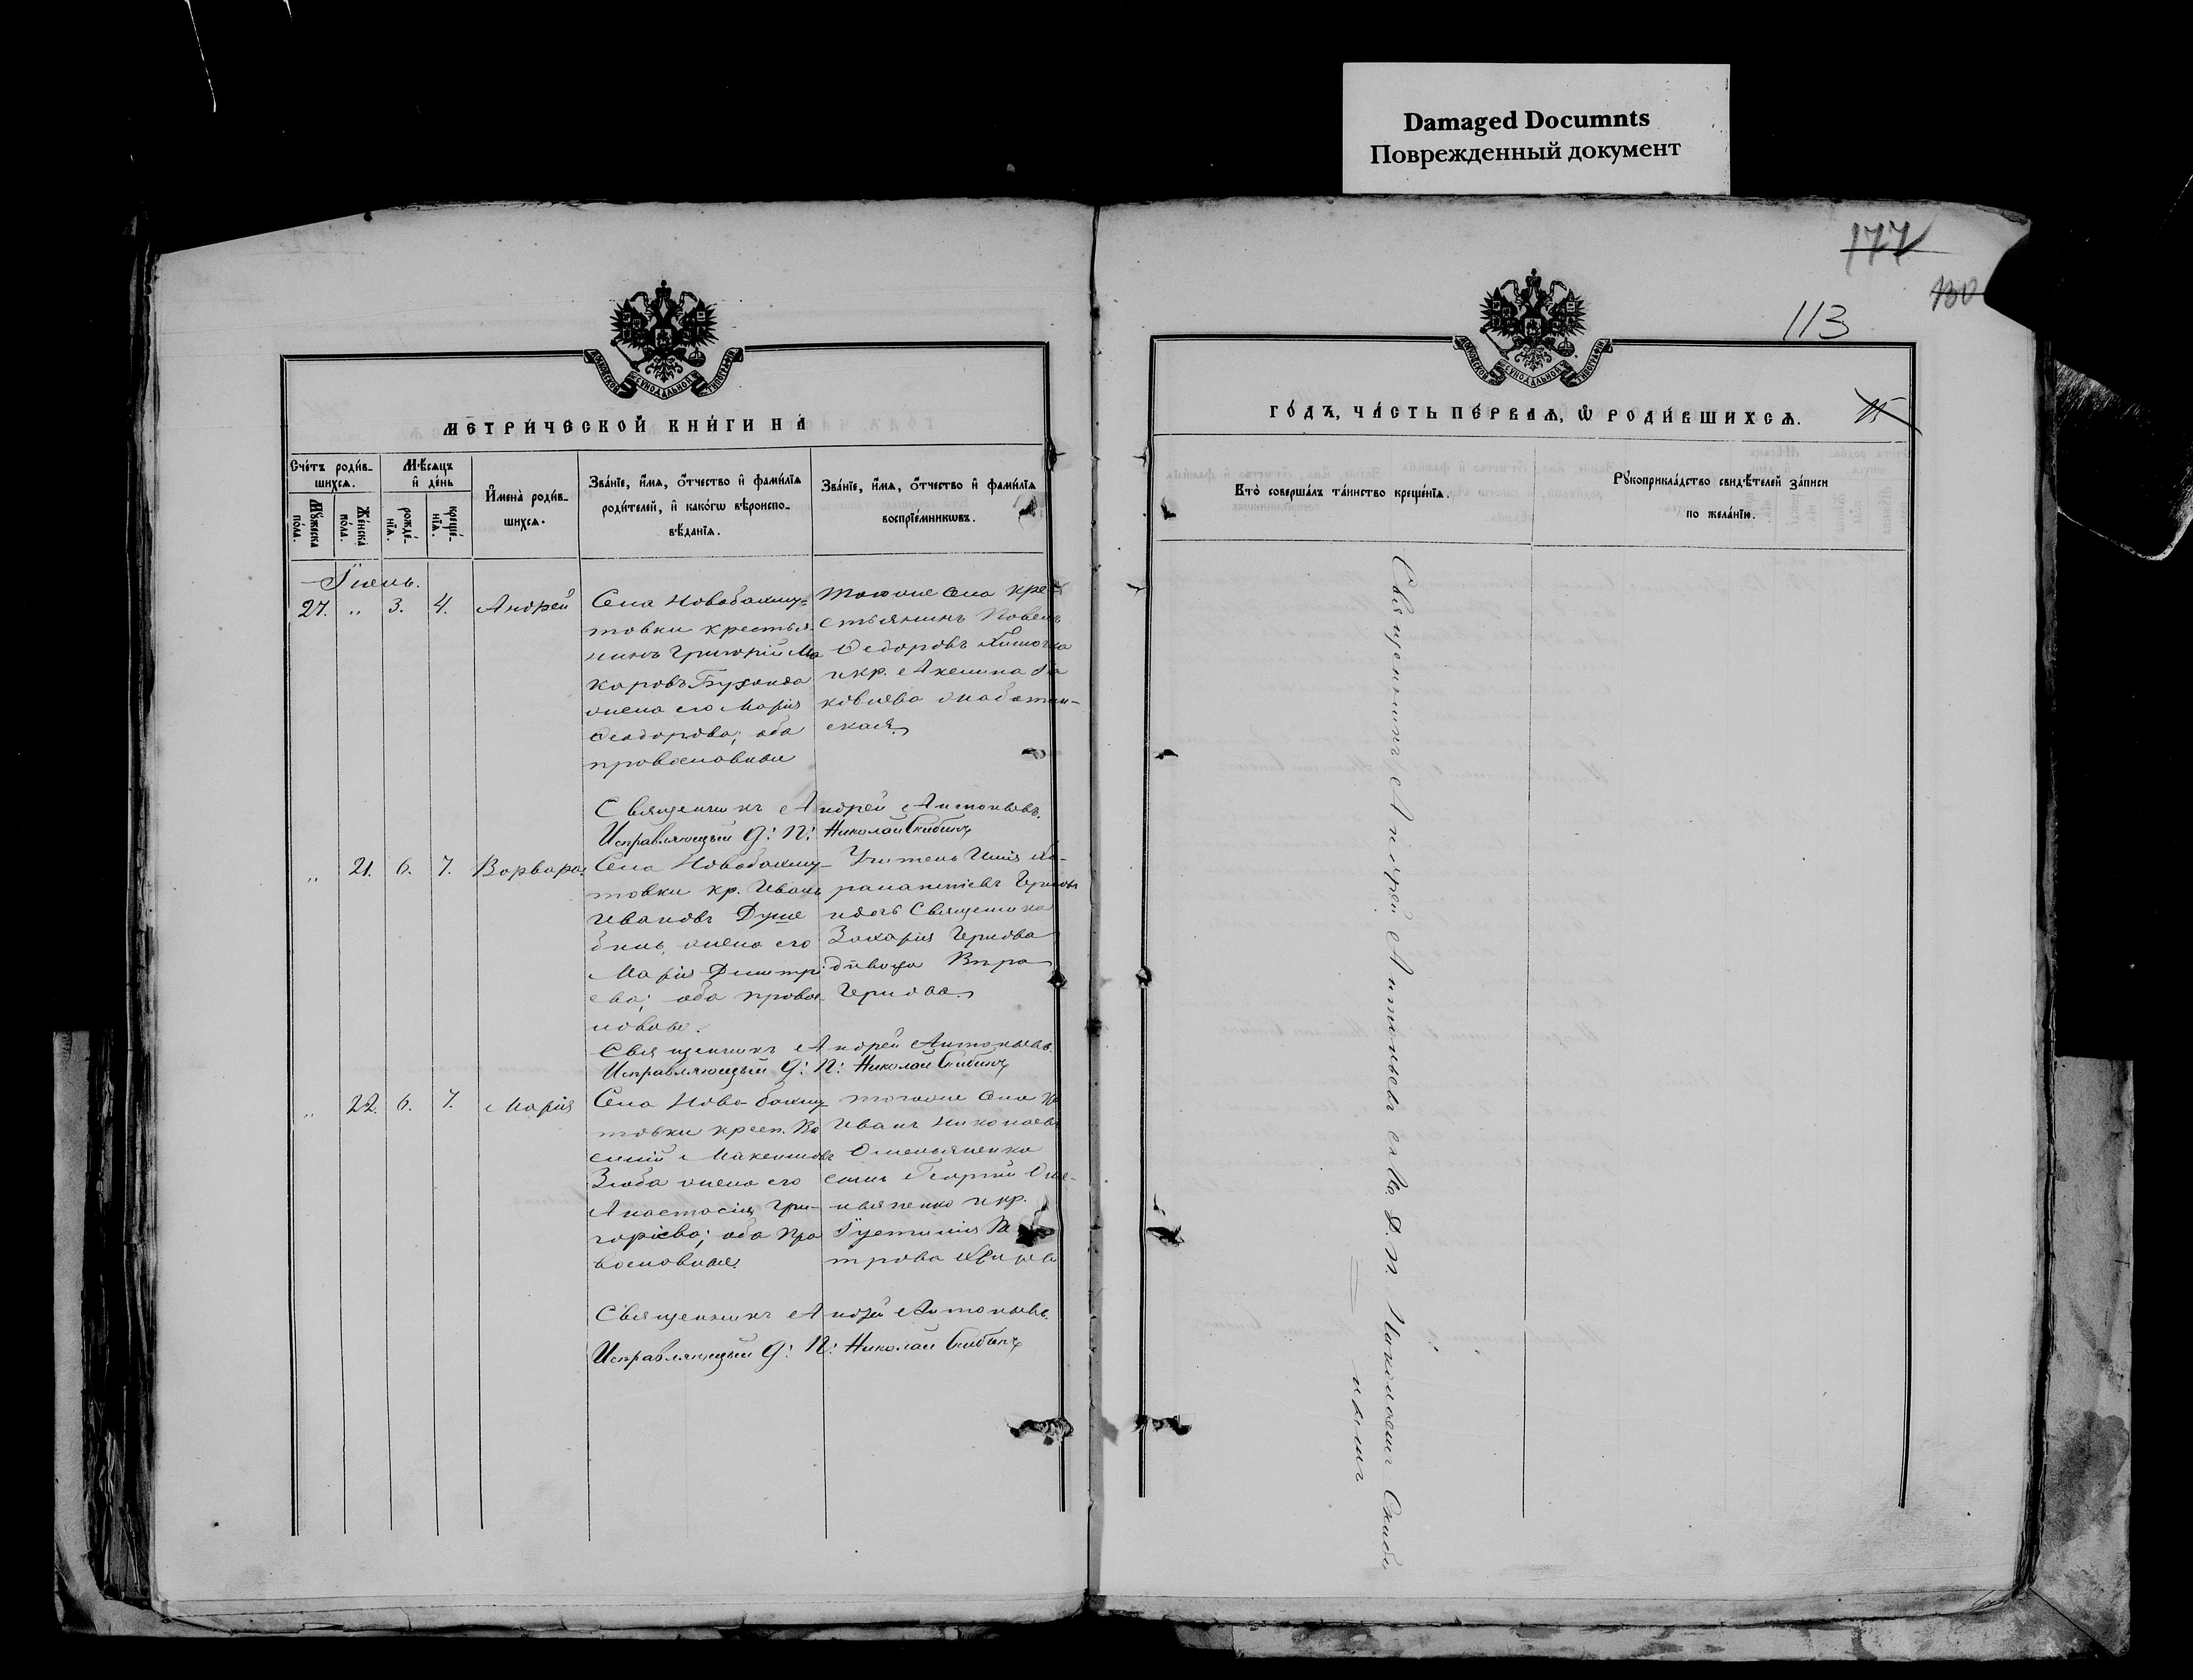 Damaged Documnts
Поврежденный документ
177
130
113
15
МОСКОВСКОЙ СѴНОДАЛЬНОЙ ТИПОГРАФІИ
МЕТРИ́ЧЕСКОЙ КНИ́ГИ НА
Сче́тъ роди́в-
шихсѧ.
Мꙋ́жеска
по́ла.
Же́нска
по́ла.
Мѣ́сѧцъ
и҆ де́нь
рожде́-
нїѧ.
креще́-
нїѧ.
И҆мена̀ роди́в-
шихсѧ.
Зва́нїе, и҆́мѧ, ѻ҆́тчество и҆ фами́лїѧ
роди́телей, и҆ како́гѡ вѣроиспо-
вѣ́данїѧ.
Зва́нїе, и҆́мѧ, ѻ҆́тчество и҆ фами́лїѧ
воспрїе́мникѡвъ.
Іюнь.
27. „ 3. 4. Андрей
Села Новобахму-
товки крестья
нинъ Григорій Ма
каровъ
жена его Марія
Ѳеодорова; оба
православные
тогоже села кре
стьянинъ Павелъ
Ѳедоровъ
и кр. Акелина Я
ковлева
ская
Священникъ Андрей Антоньевъ.
Исправляющій д: П: Николай Скибинъ
„ 21. 6. 7. Варвара
Села Новобахму-
товки кр. Иванъ
Ивановъ
жена его
Марія Димитрі
ева; оба правос
лавные.
Учитель
Священника
Захарія Чернова
дѣвица Вѣра
Чернова
Священникъ Андрей Антоньевъ.
Исправляющій д: П: Николай Скибинъ
„ 22. 6. 7. Марія
Села Ново-бахму
товки крест. Ва
силій Максимовъ
Зюба жена его
Анастасія Гри-
горіева; оба пра
вославные.
тогоже села кр
Иванъ Николаевъ
Омельяненко
сынъ Георгій Оме-
льяненко и кр.
Іустинія Пе
трова
Священникъ Андрей Антоньевъ.
Исправляющій д: П: Николай Скибинъ
МОСКОВСКОЙ СѴНОДАЛЬНОЙ ТИПОГРАФІИ
ГО́ДЪ, ЧА́СТЬ ПЕ́РВАѦ, Ѡ҆ РОДИ́ВШИХСѦ.
Кто̀ соверша́лъ та́инство креще́нїѧ.
Рꙋкоприкла́дство свидѣ́телей за́писи
по жела́нїю.
Священникъ Андрей Антоньевъ съ И. д. П. Николаемъ Скиби
нымъ